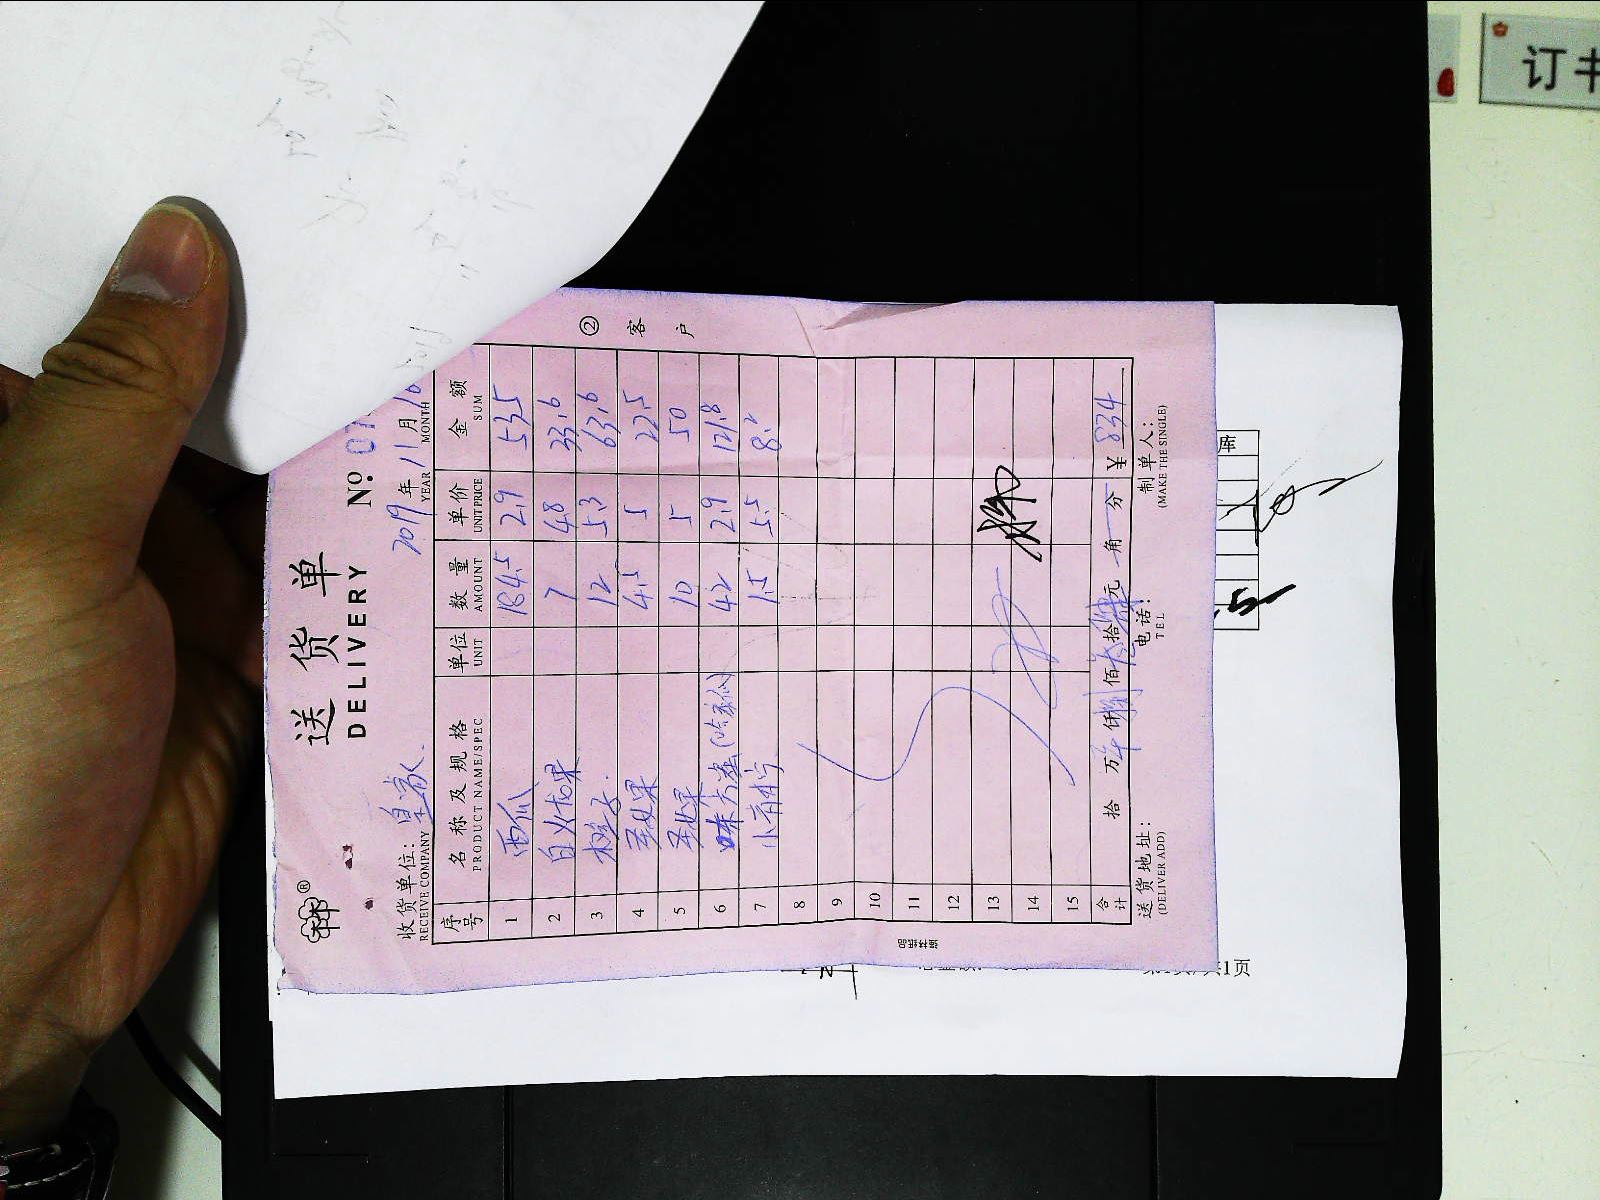 送货单
DELIVERY
№ 07
收货单位：皇家
RECEIVE COMPANY
2019年11月16
YEAR MONTH
② 客户
序号 名称及规格 单位 数量 单价 金额
PRODUCT NAME/SPEC UNIT AMOUNT UNIT PRICE SUM
1 西瓜 184.5 2.9 535
2 白火龙果 7 4.8 33.6
3 橙子 12 5.3 63.6
4 圣女果 4.5 5 22.5
5 圣女果 10 5 50
6 哈密瓜 42 2.9 121.8
7 小青柠 1.5 5.5 8.2
8
9
10
11
12
13
14
15
合计 拾 万 仟 捌佰 叁拾 肆元 角 分 ¥ 834
送货地址： 电话： 制单人：
(DELIVER ADD) TEL (MAKE THE SINGLE)
库
1页
订